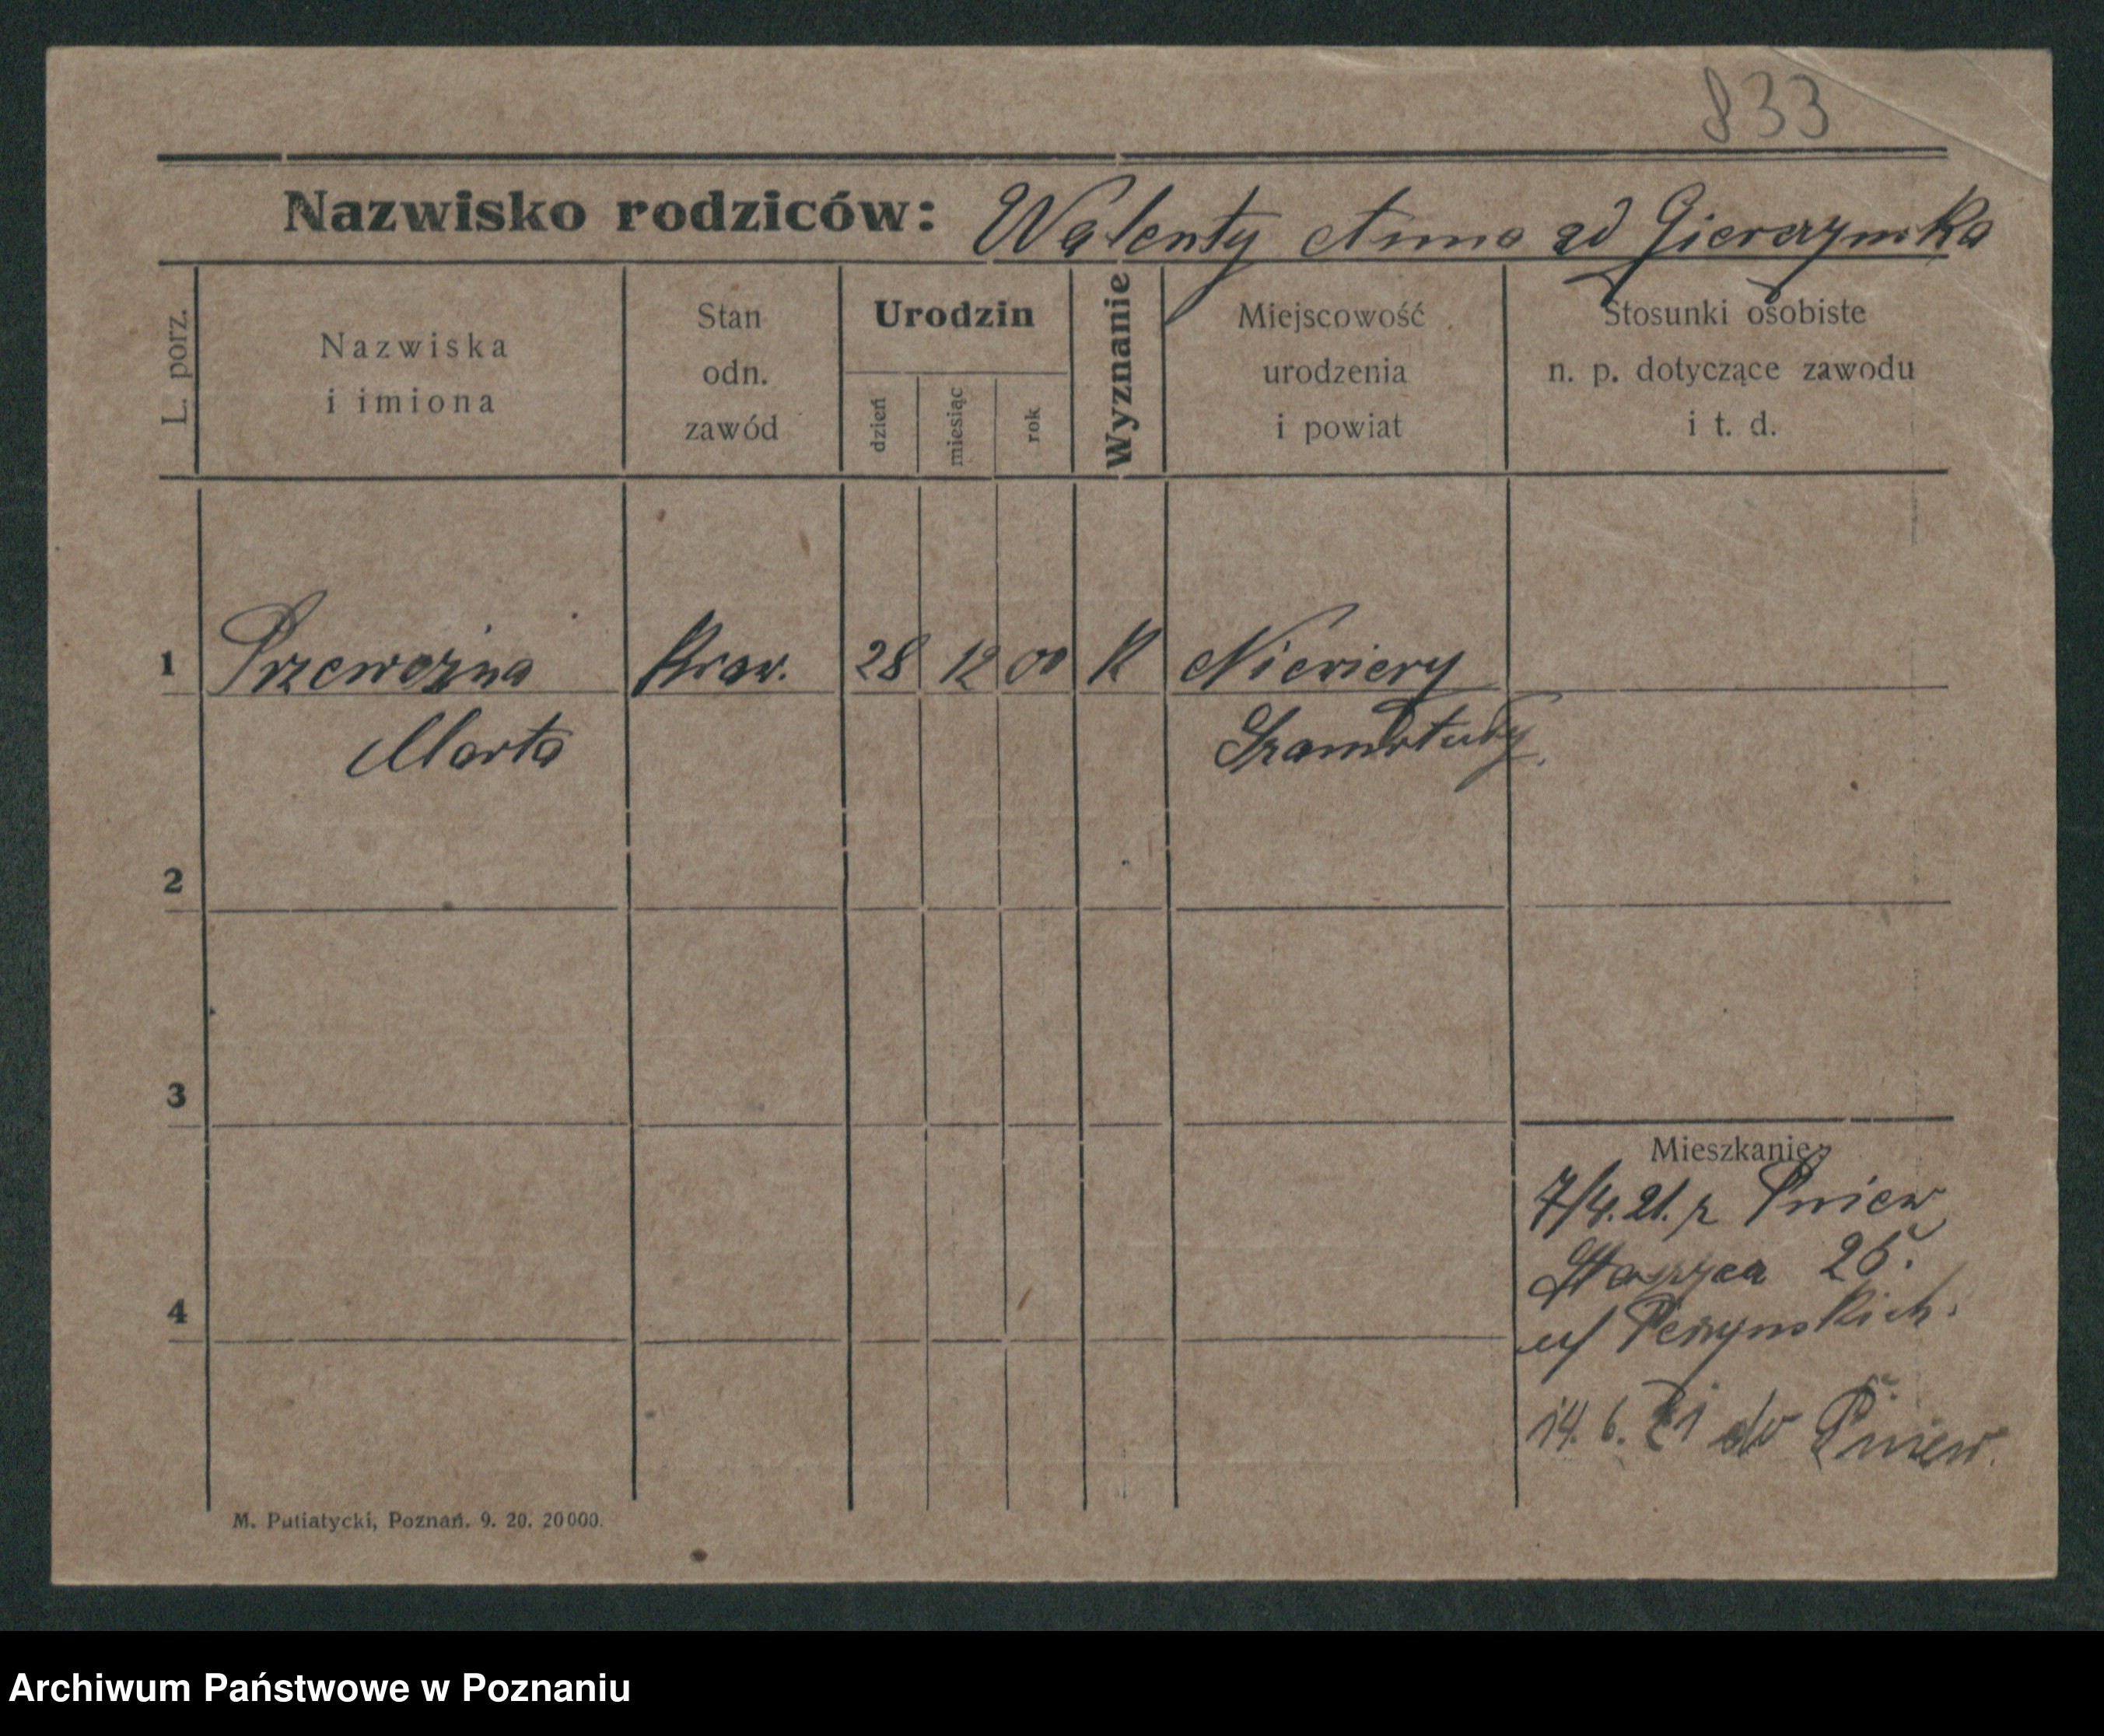 833
Nazwisko rodziców: Walenty Anna
L. porz.
Nazwiska
i imiona
Stan
odn.
zawód
Urodzin
dzień
miesiąc
rok
Wyznanie
Miejscowość
urodzenia
i powiat
Stosunki osobiste
n. p. dotyczące zawodu
i t. d.
1 Przewoźna Kraw. 28 12 00 K Niewiery
Marta Szamotuły
2
3
Mieszkanie:
7/4. 21. z Pniew
25.
4
u/
14. 6. 21 do Pniew.
M. Putiatycki, Poznań. 9. 20. 20000.
Archiwum Państwowe w Poznaniu